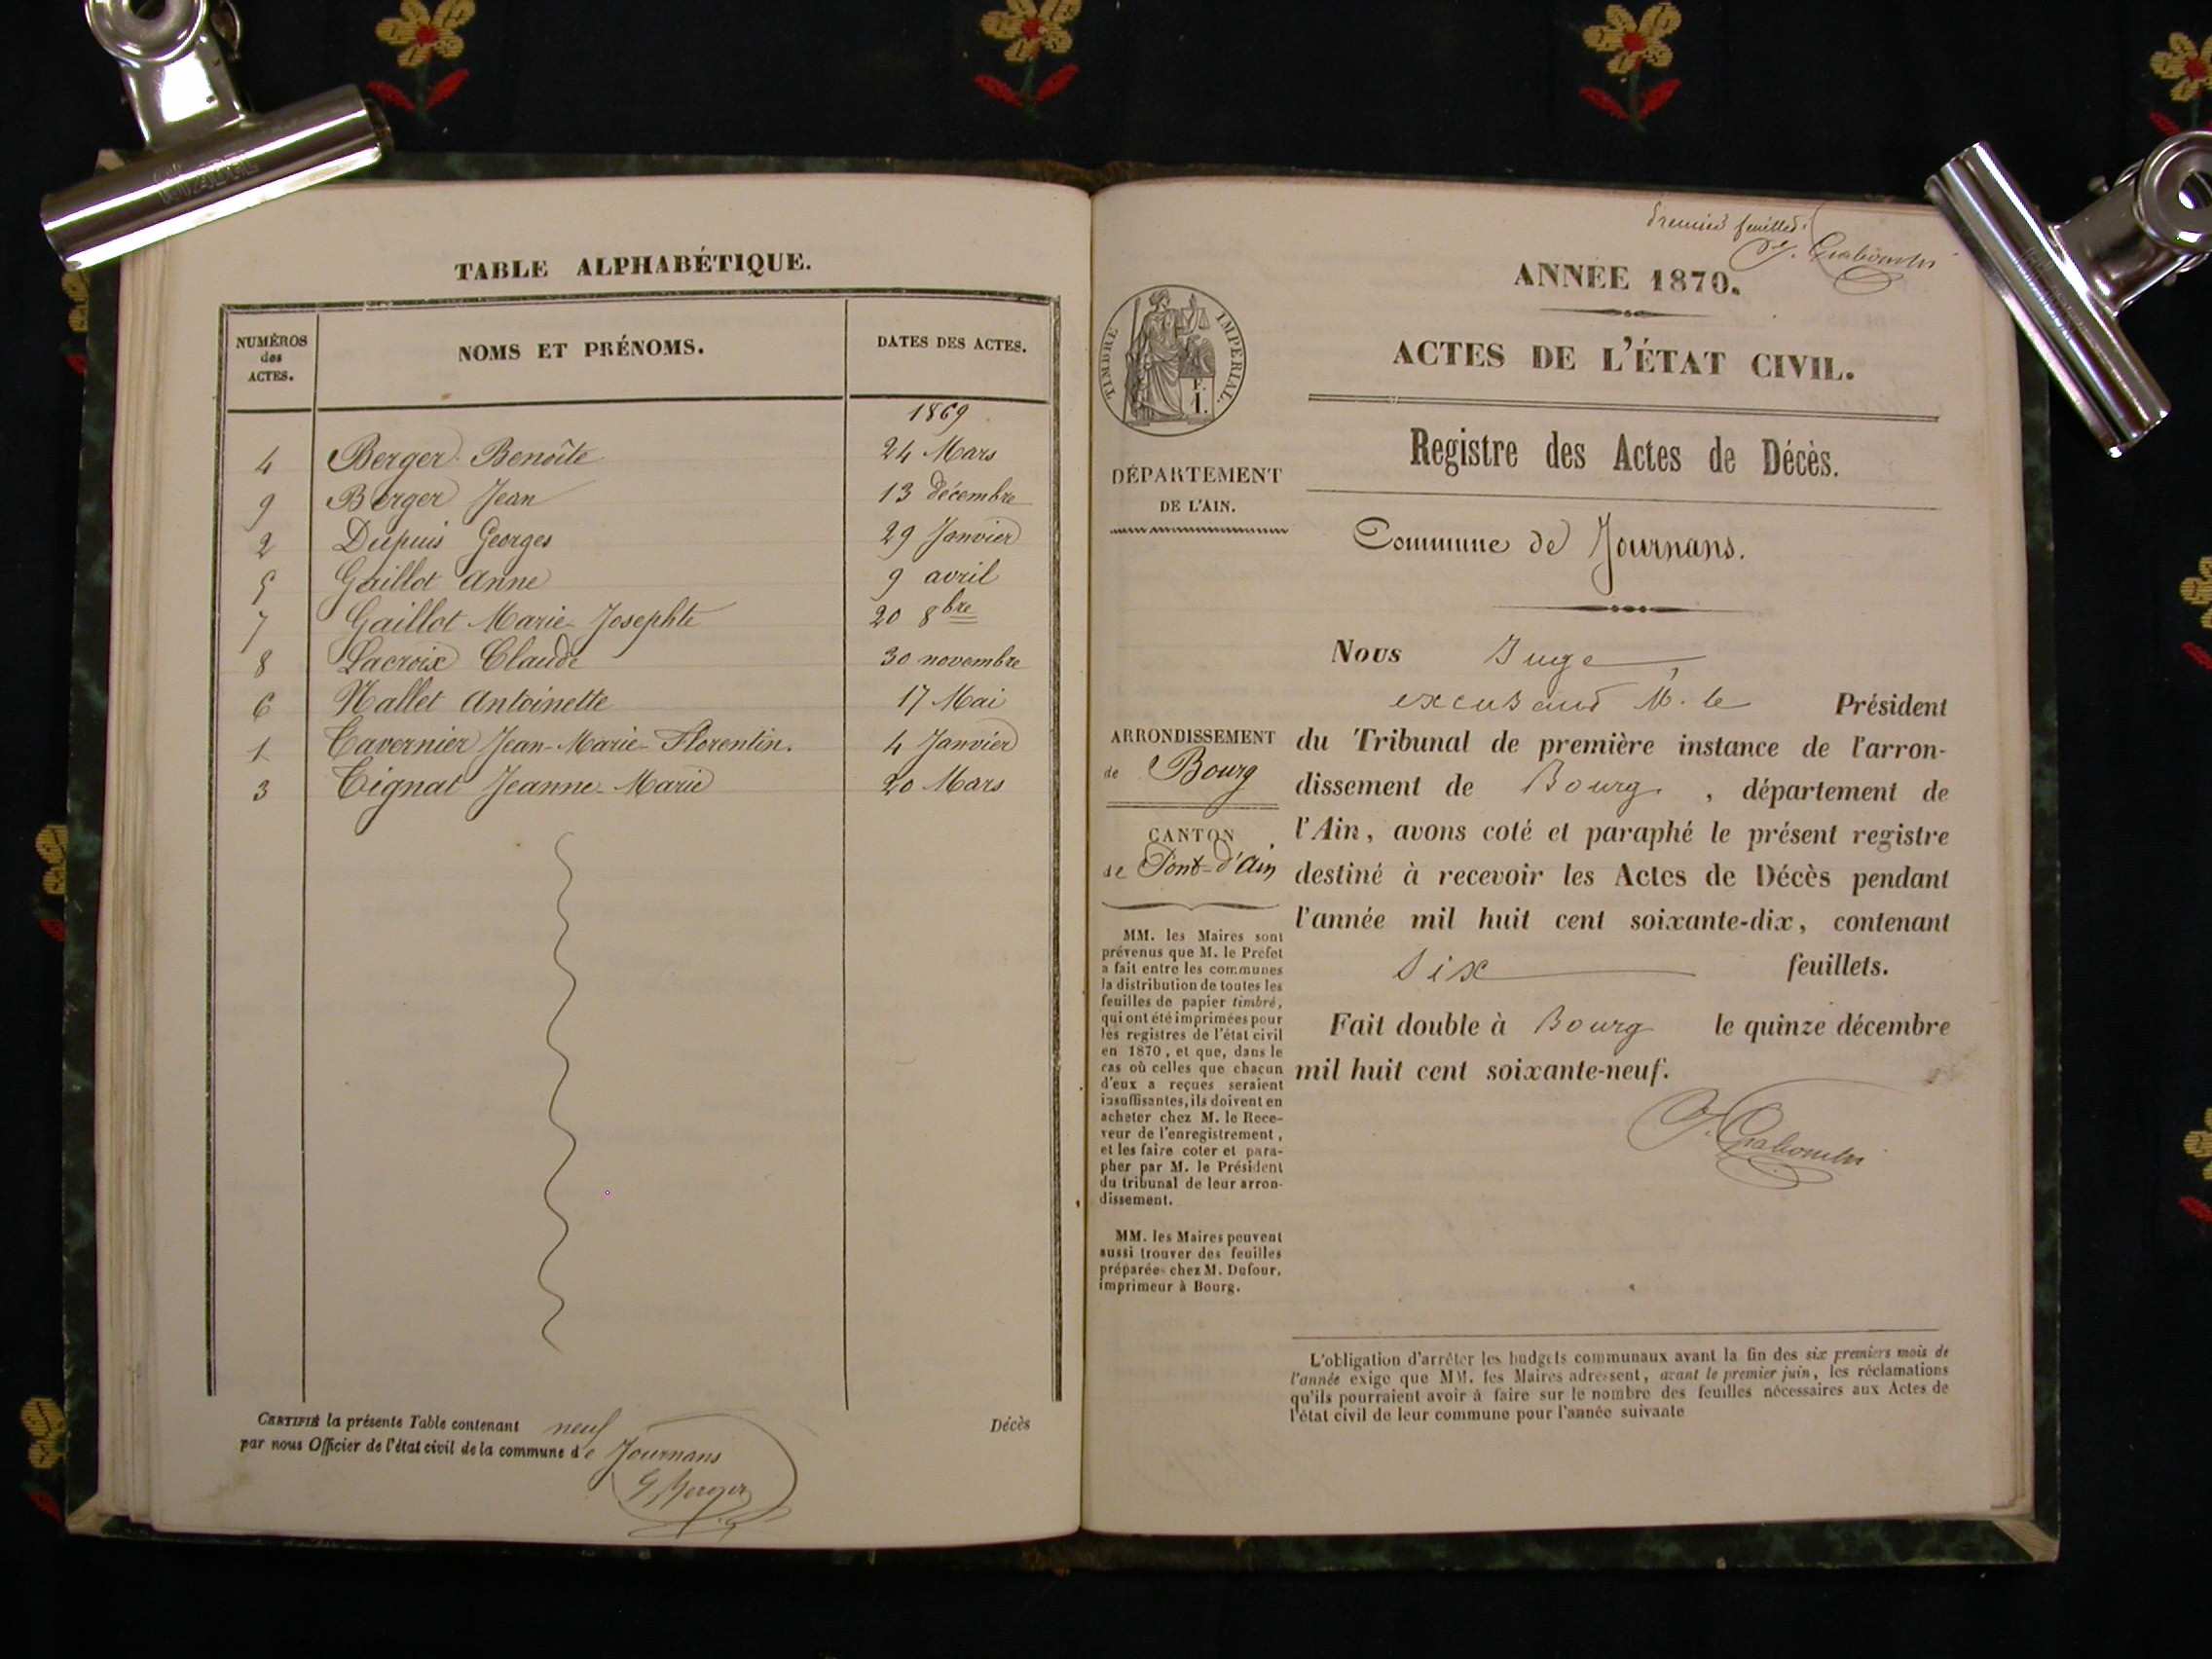 TABLE ALPHABÉTIQUE.
NUMÉROS
des
ACTES.
NOMS ET PRÉNOMS.
DATES DES ACTES.
1869
4 Berger Benoîte 24 Mars
9 Berger Jean 13 décembre
2 Dupuis Georges 29 Janvier
5 Gaillot Anne 9 avril
7 Gaillot Marie-Josephte 20 8bre
8 Lacroix Claude 30 novembre
6 Nallet Antoinette 17 Mai
1 Tavernier Jean-Marie-Florentin. 4 Janvier
3 Tignat Jeanne-Marie 20 Mars
CERTIFIÉ la présente Table contenant neuf
par nous Officier de l'état civil de la commune de Journans
G Berger
Décès
Premier feuillet
ANNÉE 1870.
ACTES DE L'ÉTAT CIVIL.
TIMBRE IMPÉRIAL.
F.
1.
Registre des Actes de Décès.
DÉPARTEMENT
DE L'AIN.
Commune de Journans.
Nous Juge,
excusant M. le Président
du Tribunal de première instance de l'arron-
dissement de Bourg, département de
l'Ain, avons coté et paraphé le présent registre
destiné à recevoir les Actes de Décès pendant
l'année mil huit cent soixante-dix, contenant
Six feuillets.
Fait double à Bourg le quinze décembre
mil huit cent soixante-neuf.
ARRONDISSEMENT
de Bourg
CANTON
de Pont-d'Ain
MM. les Maires sont
prévenus que M. le Préfet
a fait entre les communes
la distribution de toutes les
feuilles de papier timbré,
qui ont été imprimées pour
les registres de l'état civil
en 1870, et que, dans le
cas où celles que chacun
d'eux a reçues seraient
insuffisantes, ils doivent en
acheter chez M. le Rece-
veur de l'enregistrement,
et les faire coter et para-
pher par M. le Président
du tribunal de leur arron-
dissement.
MM. les Maires peuvent
aussi trouver des feuilles
préparées chez M. Dufour,
imprimeur à Bourg.
L'obligation d'arrêter les budgets communaux avant la fin des six premiers mois de
l'année exige que MM. les Maires adressent, avant le premier juin, les réclamations
qu'ils pourraient avoir à faire sur le nombre des feuilles nécessaires aux Actes de
l'état civil de leur commune pour l'année suivante